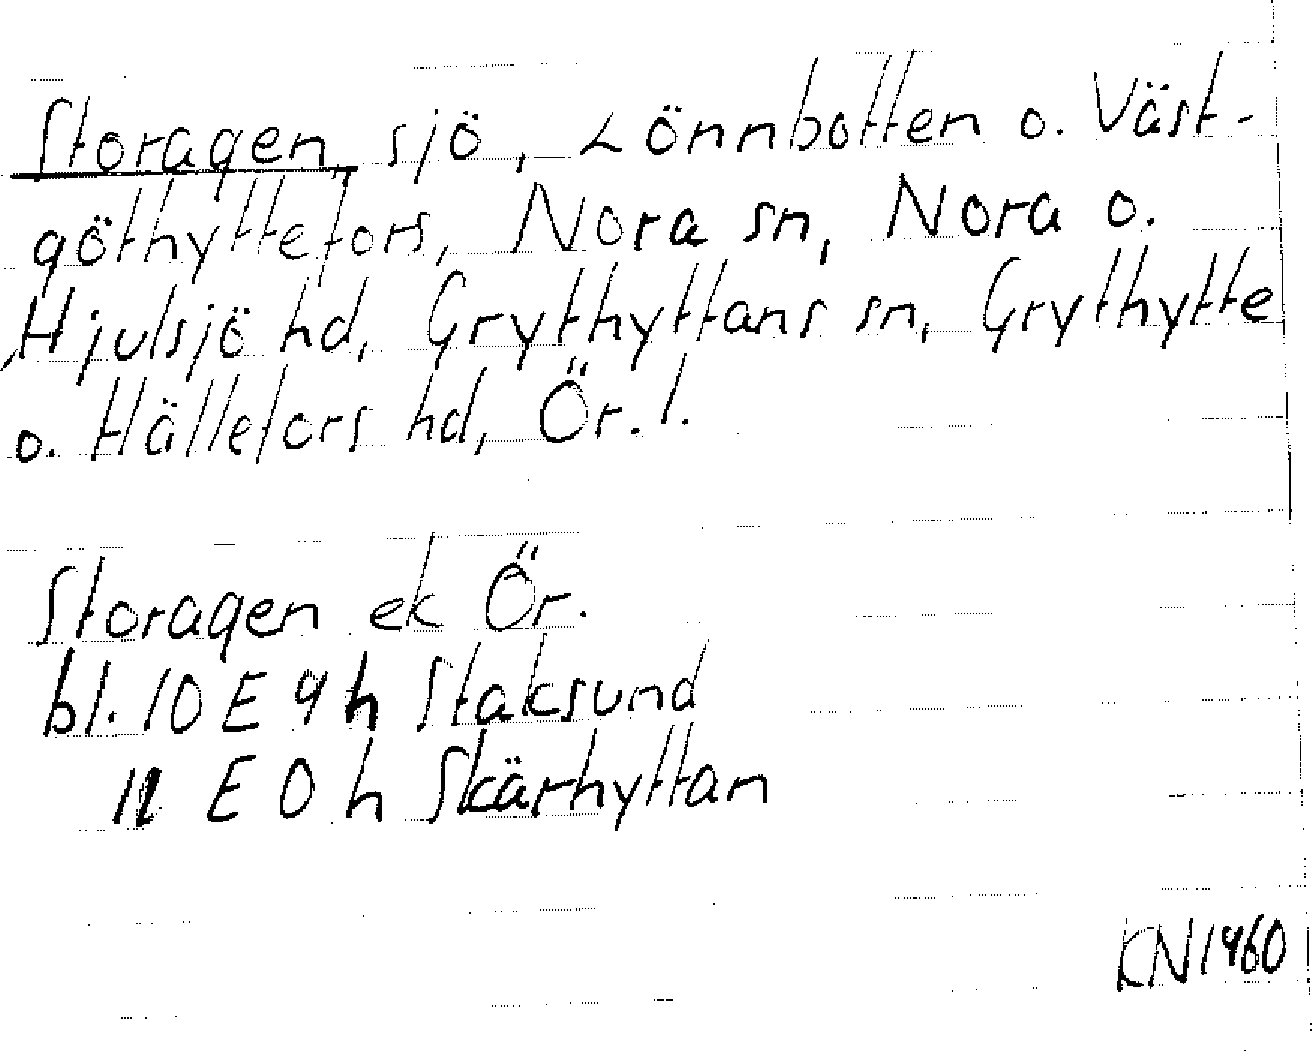 Storagen, sjö, Lönnbotten o. Väst-
göthyttefors, Nora sn, Nora o.
Hjulsjö hd, Grythyttans sn, Grythytte
o. Hällefors hd, Ör. l.
Storagen ek Ör.
bl. 10 E 9 h Staksund
11 E 0 h Skärhyttan
KN 1960